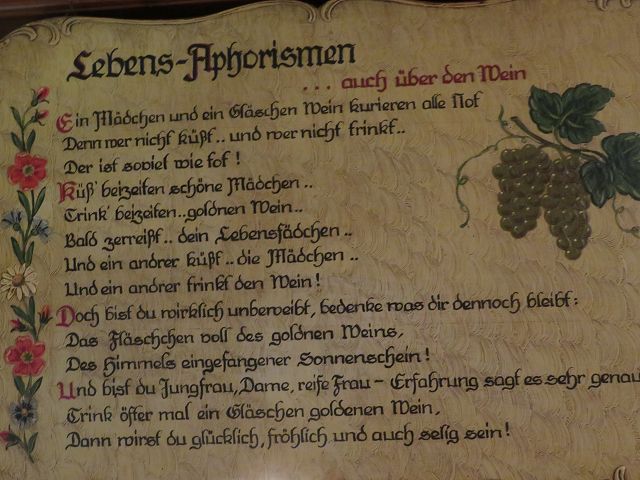 Lebens-Aphorismen
... auch über den Wein
Ein Mädchen und ein Gläschen Wein kurieren alle Not
Denn wer nicht küßt.. und wer nicht trinkt..
Der ist soviel wie tot!
Küß' beizeiten schöne Mädchen..
Trink' beizeiten..goldnen Wein..
Bald zerreißt.. dein Lebensfädchen..
Und ein andrer küßt.. die Mädchen..
Und ein andrer trinkt den Wein!
Doch bist du wirklich unbeweibt, bedenke was dir dennoch bleibt:
Das Fläschchen voll des goldnen Weins,
Des Himmels eingefangener Sonnenschein!
Und bist du Jungfrau, Dame, reife Frau - Erfahrung sagt es sehr genau
Trink öfter mal ein Gläschen goldenen Wein,
Dann wirst du glücklich, fröhlich und auch selig sein!